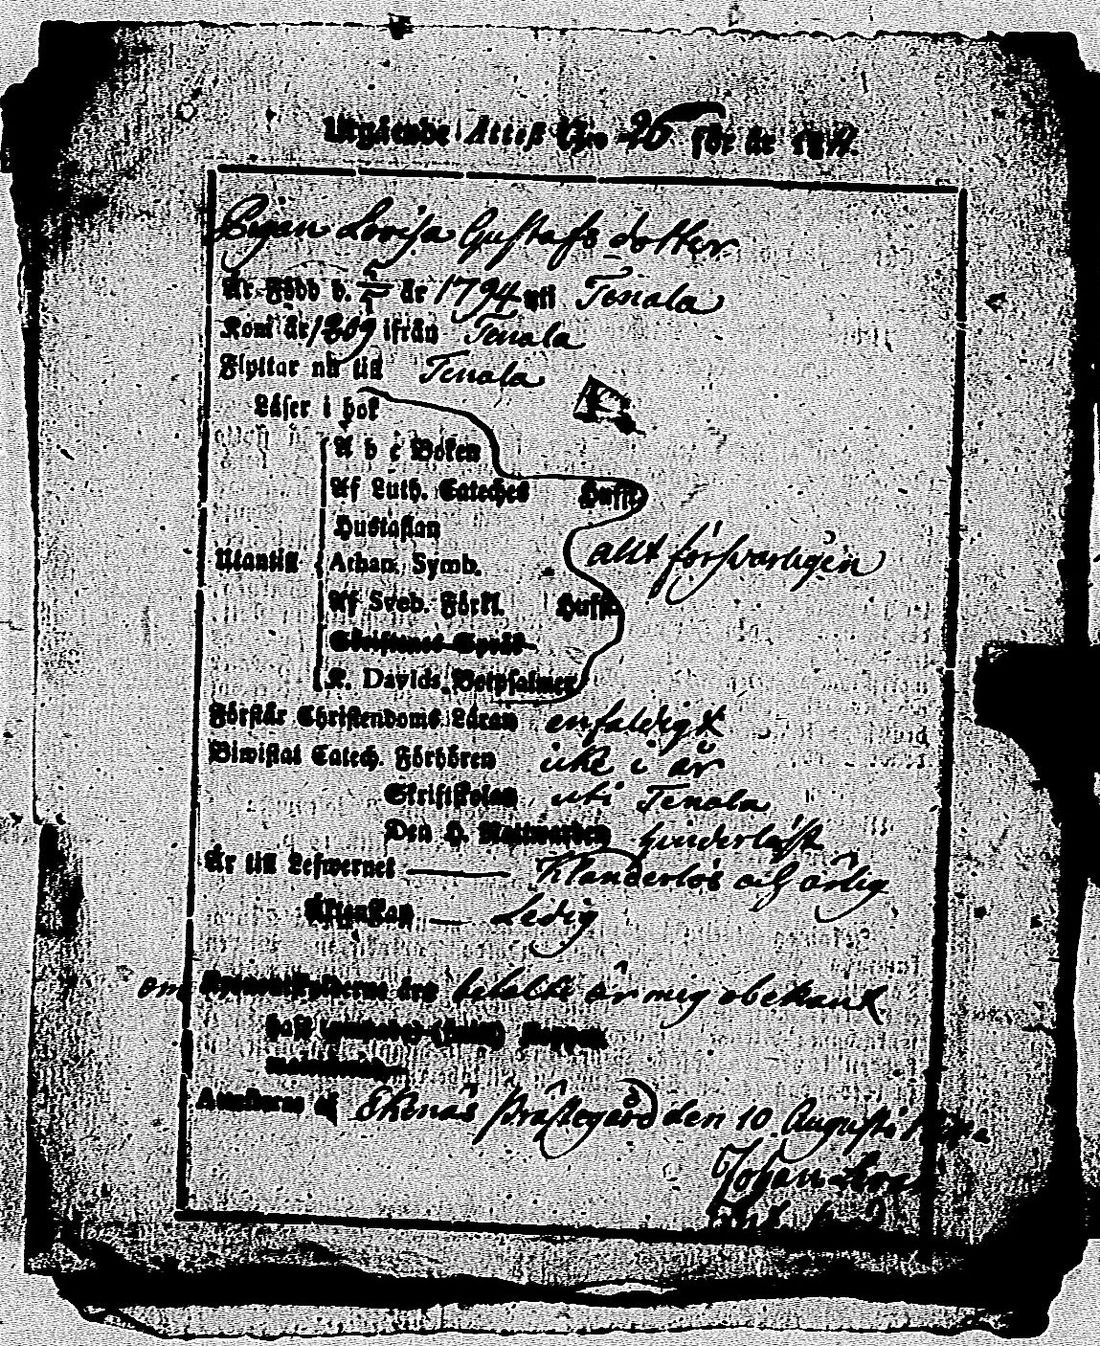 Utgående Attest N:ro 26 för år 18
Pigan Lovisa Gustafs dotter
Är Född d. 5/5 år 1794 uti Tenala
Kom år 1809 ifrån Tenala
Flyttar nu till Tenala
Läser i bok
A b c Boken
Af Luth. Cateches Hufst.
Hustaflan
Utantill Athan. Symb. allt försvarligen
Af Sveb. Förkl. Hufst.
Christenes Språk
K. Davids Botpsalmer
Förstår Christendoms Läran enfaldigt
Biwistat Catech. Förhören icke i år
Skriftskolan uti Tenala
Den H. Nattwarden hinderlöst
Är till Lefwernet Klanderlös och ärlig
Äktenskap Ledig
om betalte är mig obekant
haft Koppor
Attesteras af Ekenäs Prästegård den 10 Augusti
Johan